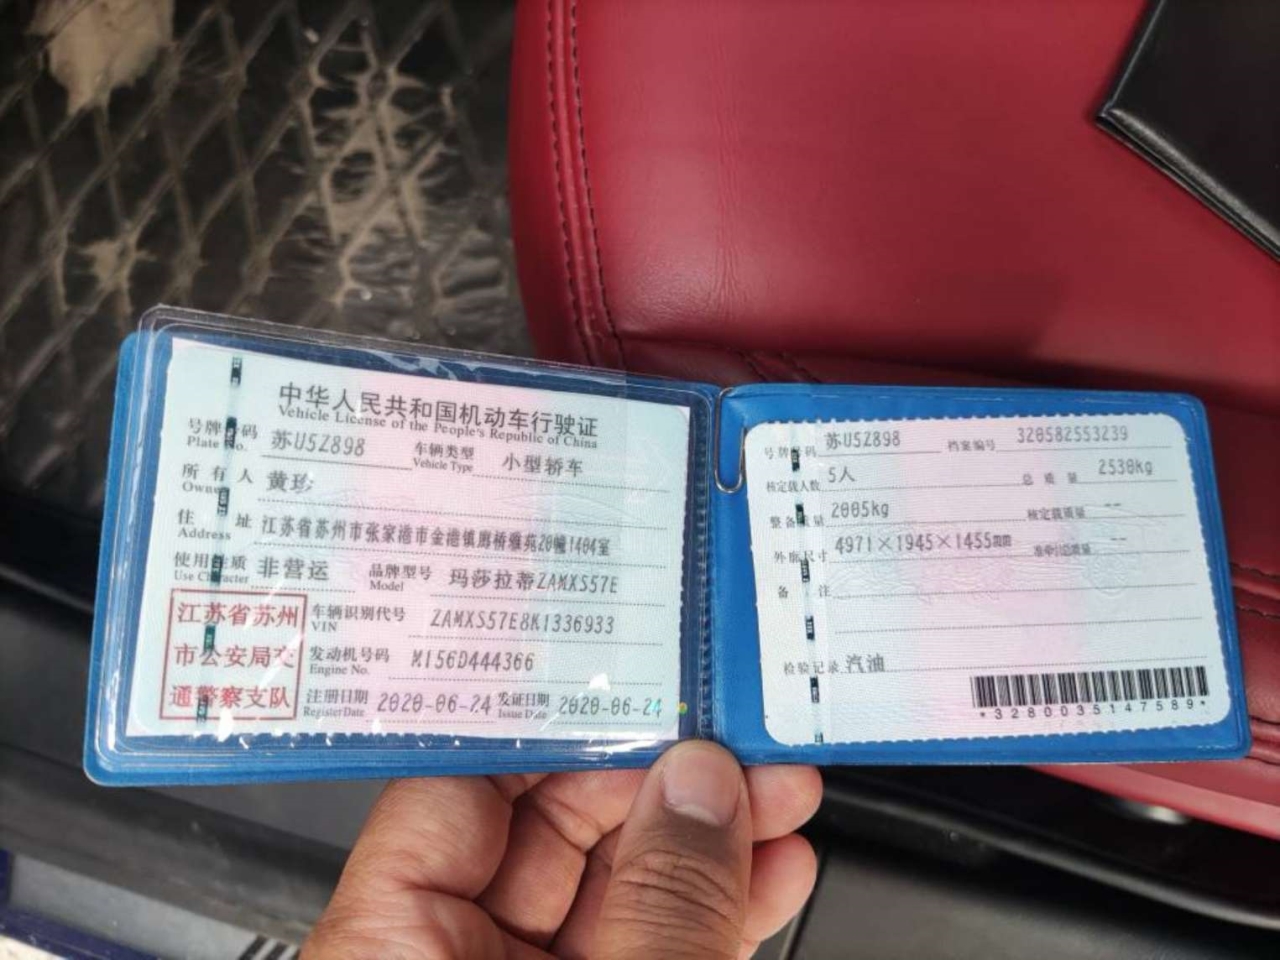 中华人民共和国机动车行驶证
Vehicle License of the People's Republic of China
号牌号码 苏U5Z898 车辆类型 小型轿车
Plate No. Vehicle Type
所有人 黄珍
Owner
住址 江苏省苏州市张家港市金港镇廊桥雅苑20幢1404室
Address
使用性质 非营运 品牌型号 玛莎拉蒂ZAMXS57E
Use Character Model
江苏省苏州
市公安局交
通警察支队
车辆识别代号 ZAMXS57E8K1336933
VIN
发动机号码 M156D444366
Engine No.
注册日期 2020-06-24 发证日期 2020-06-24
Register Date Issue Date
号牌号码 苏U5Z898 档案编号 320582553239
核定载人数 5人 总质量 2530kg
整备质量 2005kg 核定载质量 --
外廓尺寸 4971×1945×1455mm 准牵引总质量 --
备注
检验记录 汽油
*3280035147589*